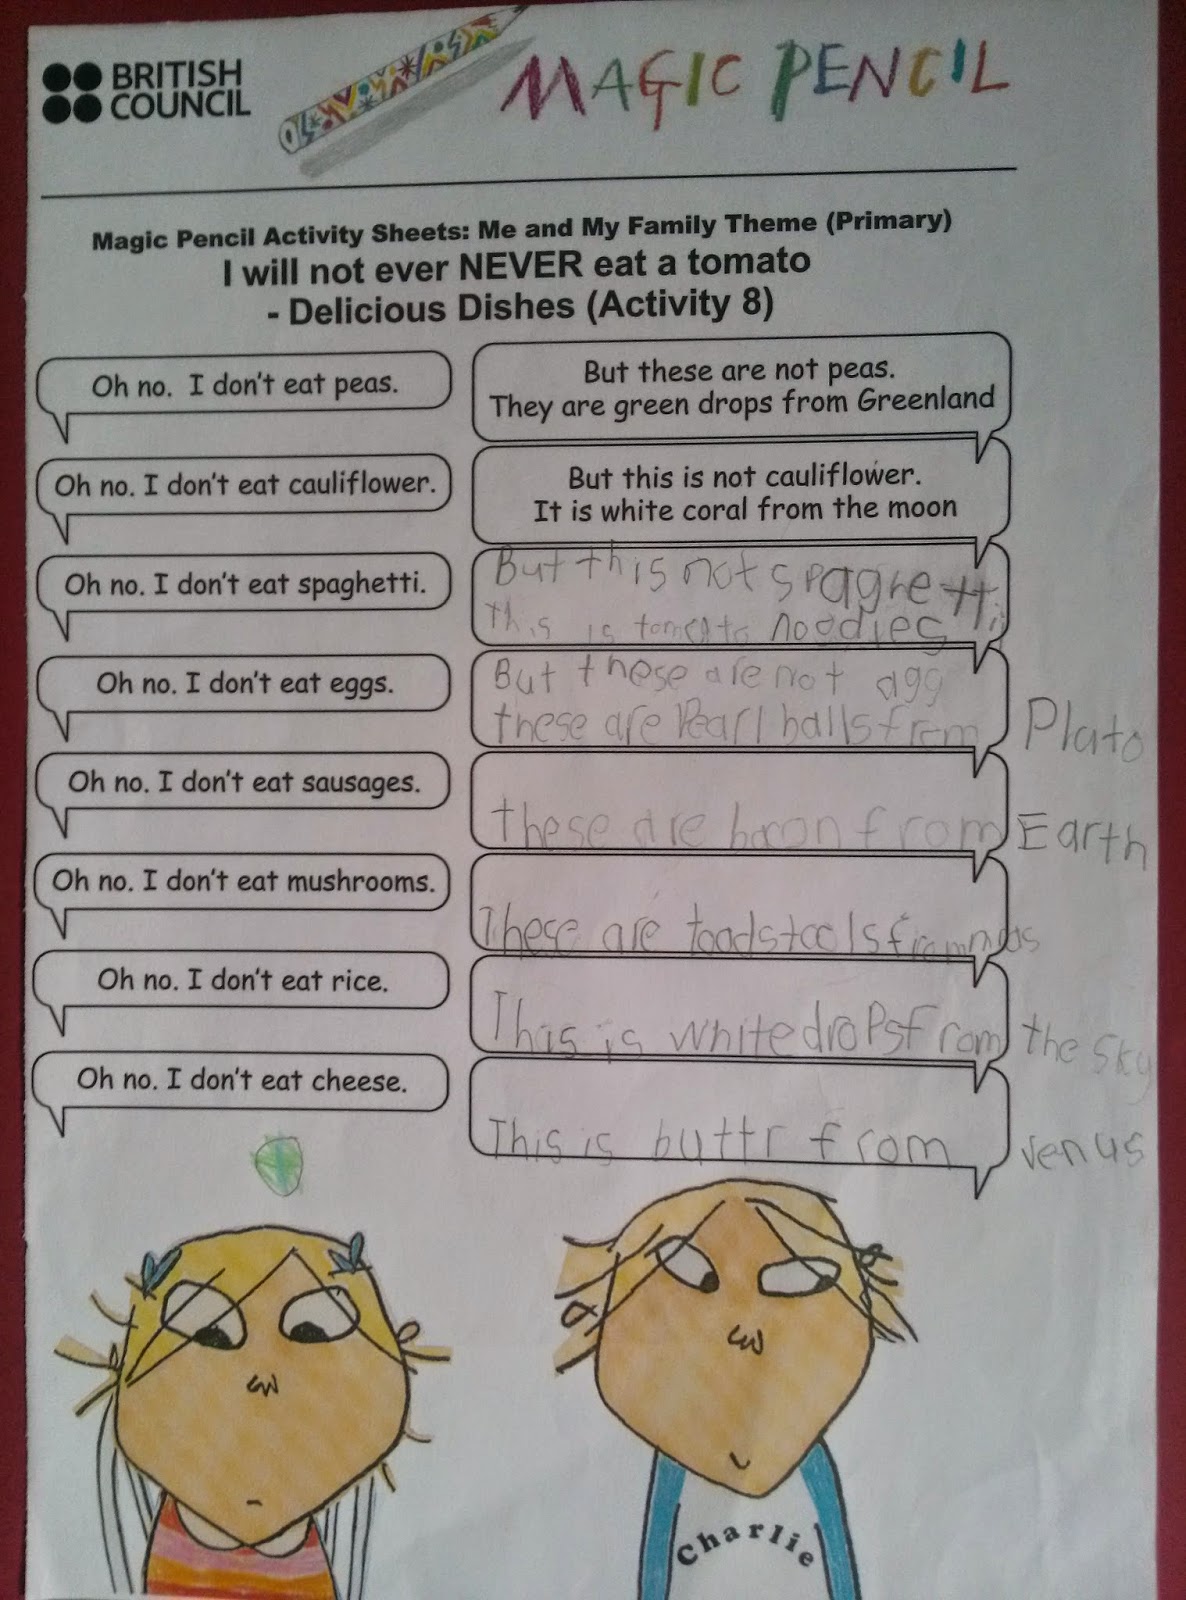 BRITISH
COUNCIL
MAGIC PENCIL
Magic Pencil Activity Sheets: Me and My Family Theme (Primary)
I will not ever NEVER eat a tomato
- Delicious Dishes (Activity 8)
Oh no. I don't eat peas.
But these are not peas.
They are green drops from Greenland
Oh no. I don't eat cauliflower.
But this is not cauliflower.
It is white coral from the moon
Oh no. I don't eat spaghetti.
But this not spaghetti
this is tomato noodles
Oh no. I don't eat eggs.
But these are not agg
these are Pearl balls from Plato
Oh no. I don't eat sausages.
these are bacon from Earth
Oh no. I don't eat mushrooms.
These are toadstools from
Oh no. I don't eat rice.
Thas is white drops from the sky
Oh no. I don't eat cheese.
This is buttr from venus
Charlie